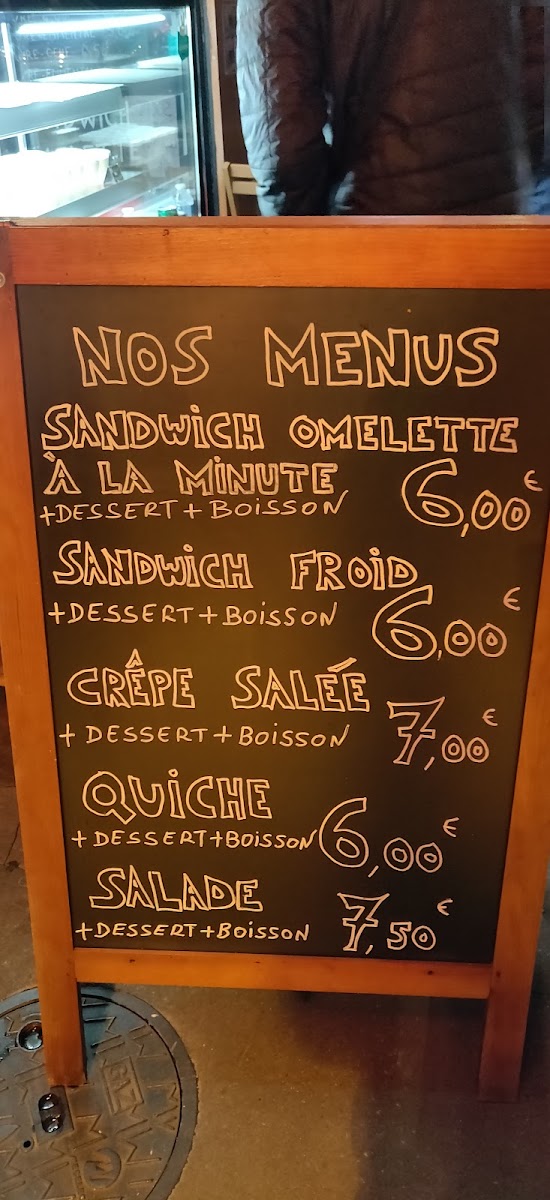 NOS MENUS
SANDWICH OMELETTE
À LA MINUTE 6,00€
+DESSERT+BOISSON
SANDWICH FROID
+DESSERT+BOISSON 6,00€
CRÊPE SALÉÉ
+ DESSERT+BOISSON 7,00€
QUICHE
+ DESSERT+BOISSON 6,00€
SALADE
+DESSERT+BOISSON 7,50€